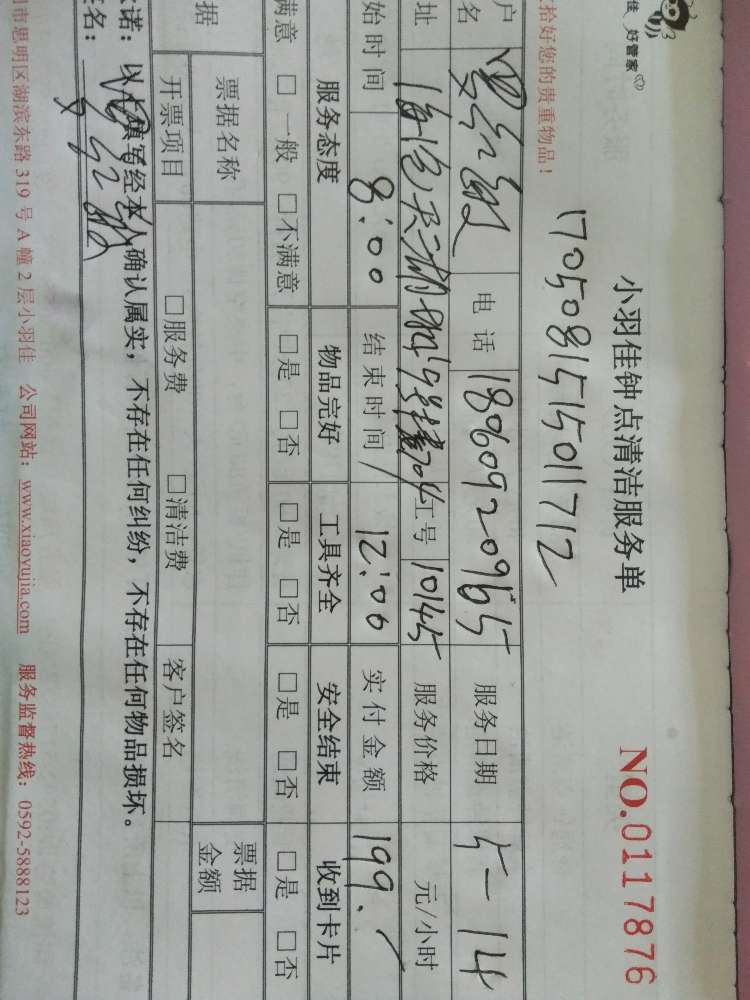 佳 好管家
小羽佳钟点清洁服务单
NO.0117876
拾好您的贵重物品！
1705081515011712
户名 电话 18060920965 服务日期 5-14
址 工号 10145 服务价格 元/小时
始时间 8:00 结束时间 12:00 实付金额 199.
服务态度 物品完好 工具齐全 安全结束 收到卡片
满意 □ 一般 □不满意 □是 □否 □是 □否 □是 □否 □是 □否
据 票据名称 票据金额
开票项目 □服务费 □清洁费 客户签名
诺：以上填写经本人确认属实，不存在任何纠纷，不存在任何物品损坏。
签名：
市思明区湖滨东路 319 号 A 幢 2 层小羽佳 公司网站：www.xiaoyujia.com 服务监督热线：0592-5888123